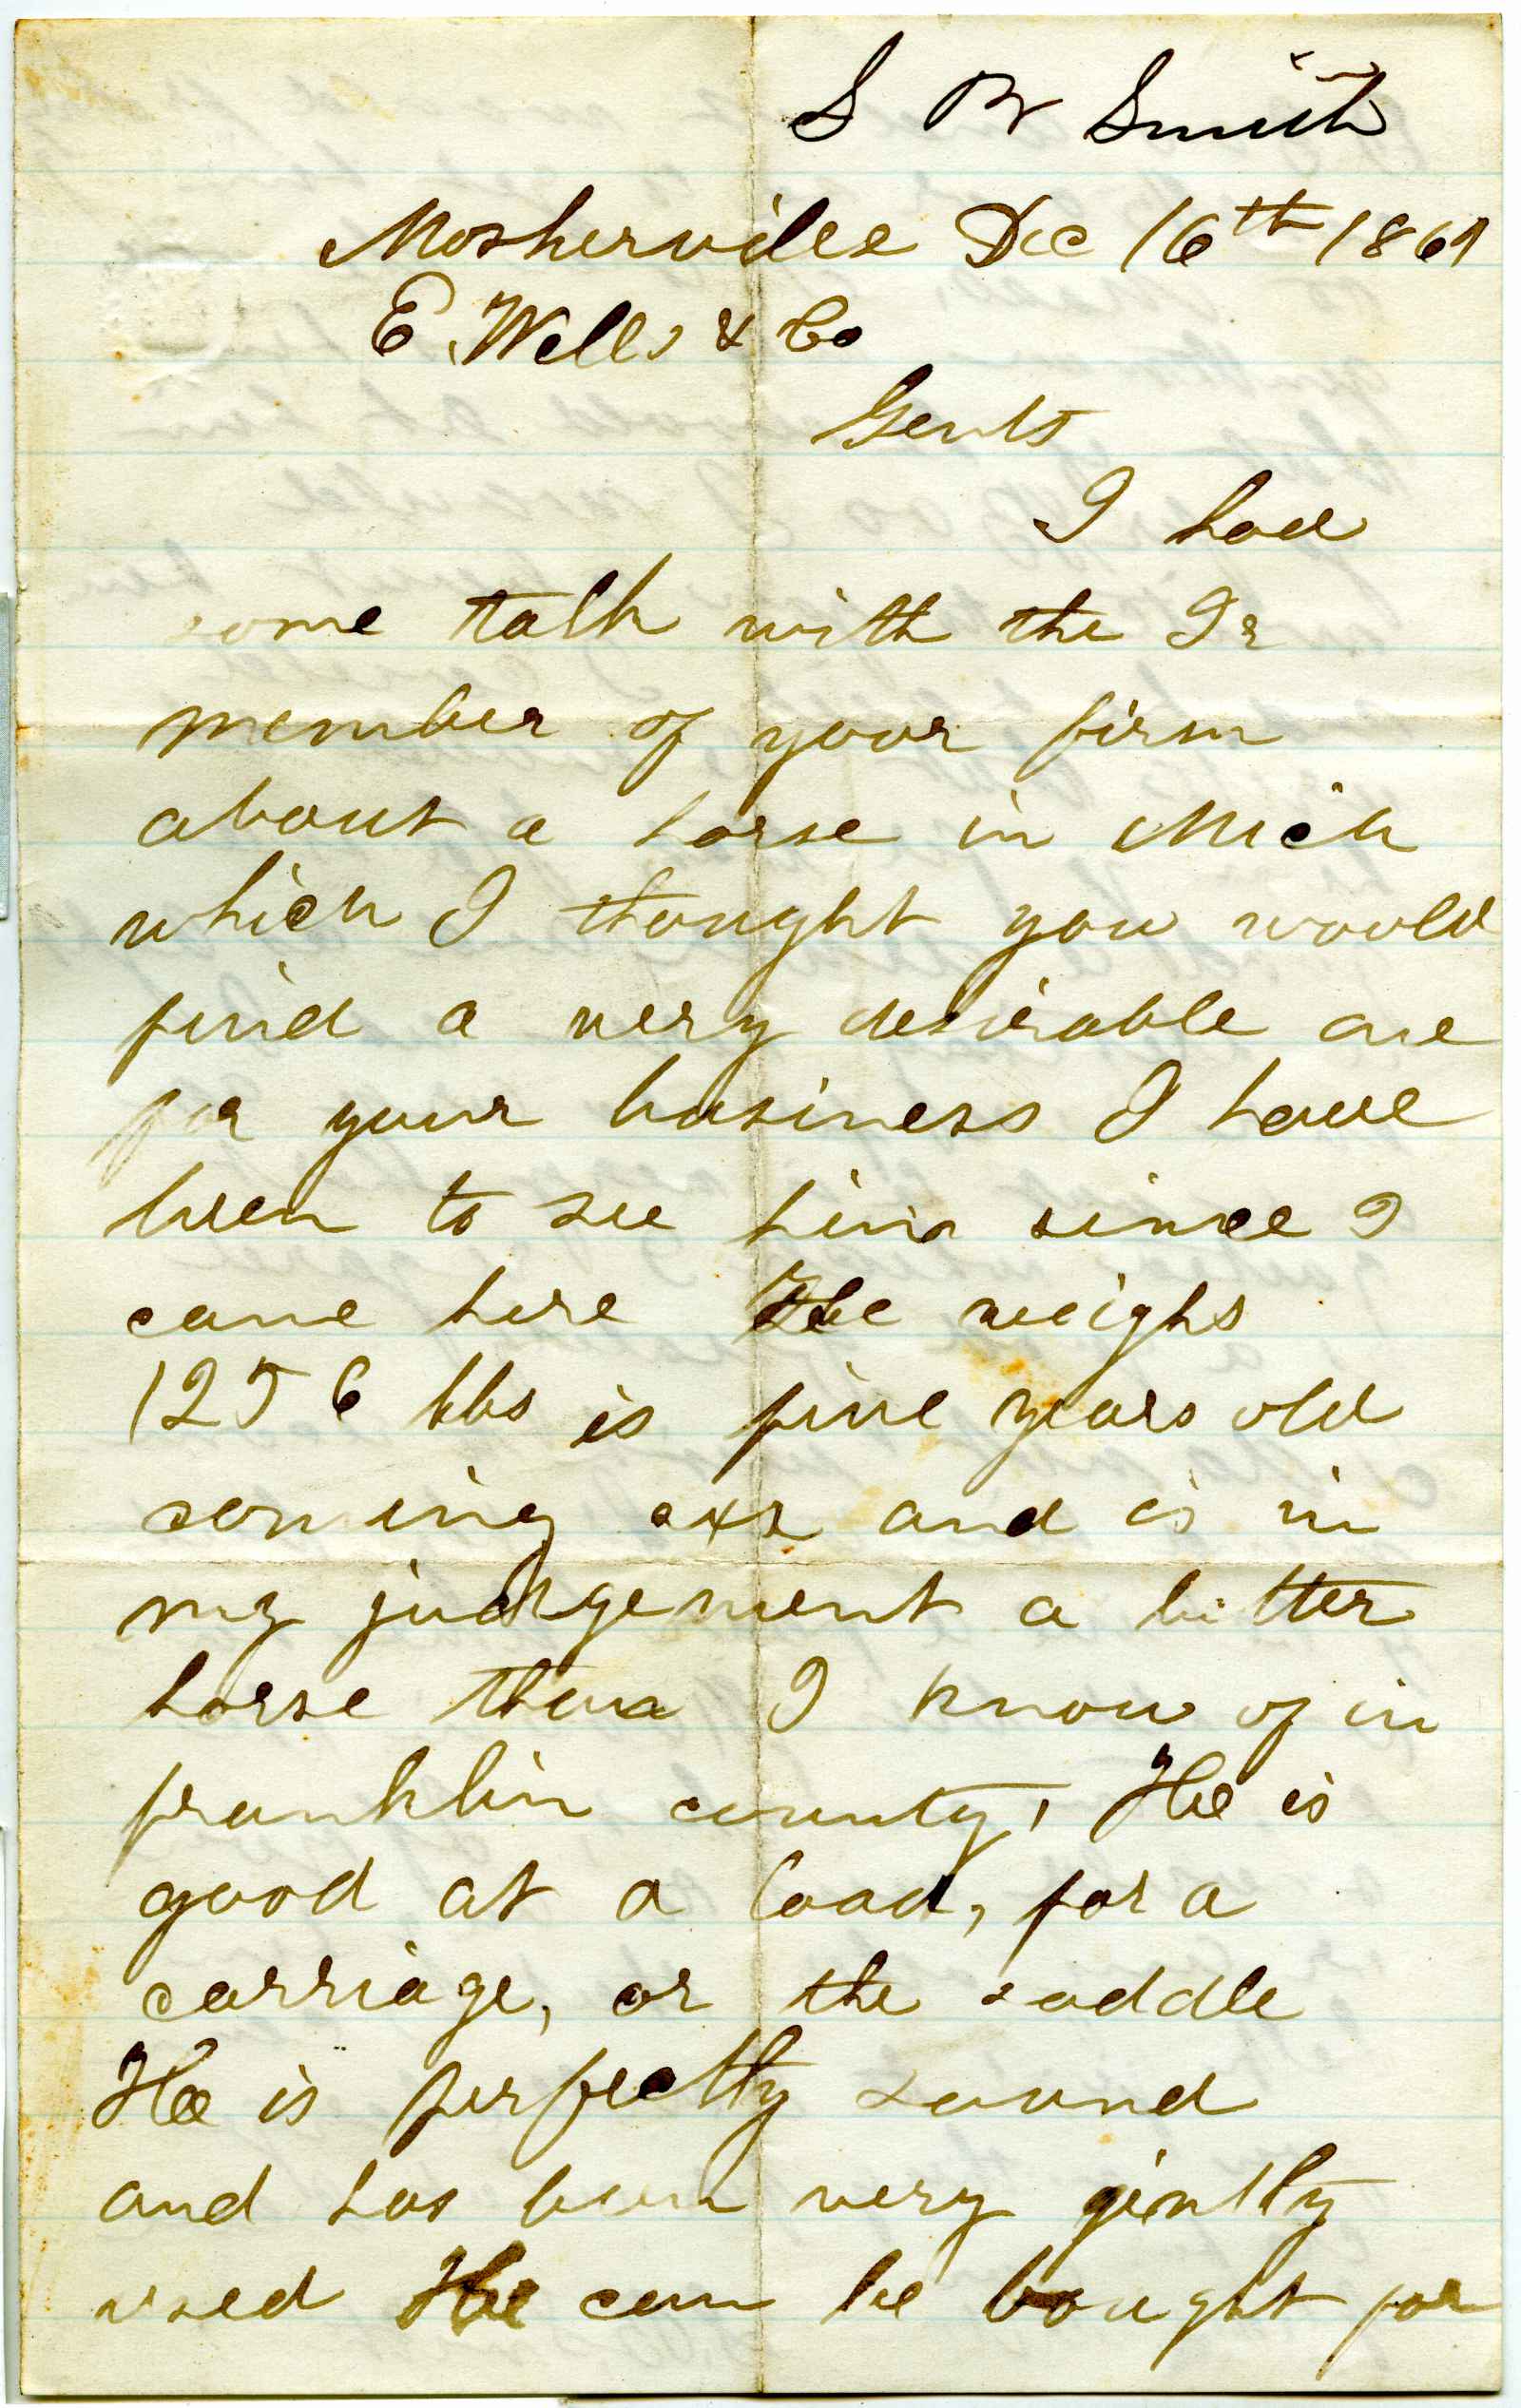 S B Smith
Mosherville Dec 16th 1869
E. Wells & Co
Gents
I had
some talk with the Jr
member of your firm
about a horse in Mich
which I thought you would
find a very desirable one
for your business I have
been to see him since I
came here He weighs
1256 lbs is five years old
coming six and is in
my judgement a better
horse than I know of in
franklin county, He is
good at a load, for a
carriage, or the saddle
He is perfectly sound
and has been very gently
used He can be bought for